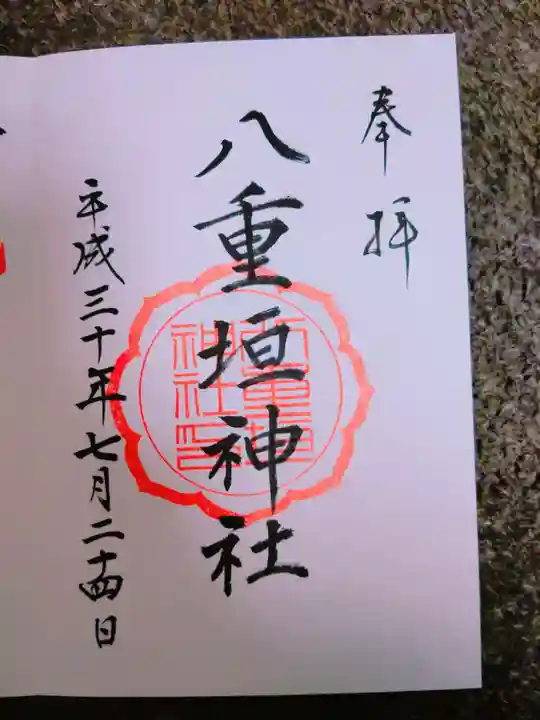 奉拝
八重垣神社
八重垣神社印
平成三十年七月二十四日